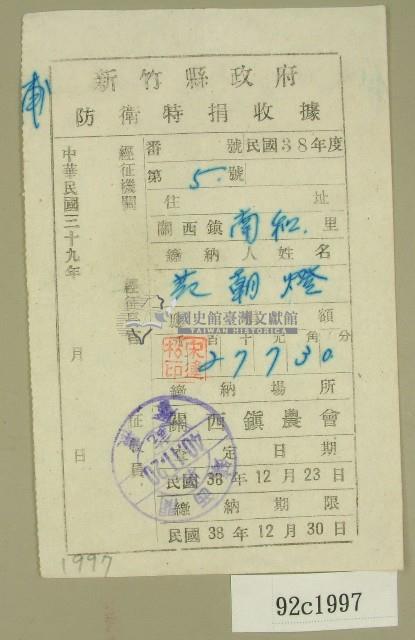 新竹縣政府
防衛特捐收據
番號
民國38年度
第5號
住址
關西鎮南和里
繳納人姓名
范朝燈
額
百十元角分
27730
繳納場所
關西鎮農會
定日期
民國38年12月23日
繳納期限
民國38年12月30日
經征機關
經征
征
員
中華民國三十九年
月
日
國史館臺灣文獻館
1997
92c1997